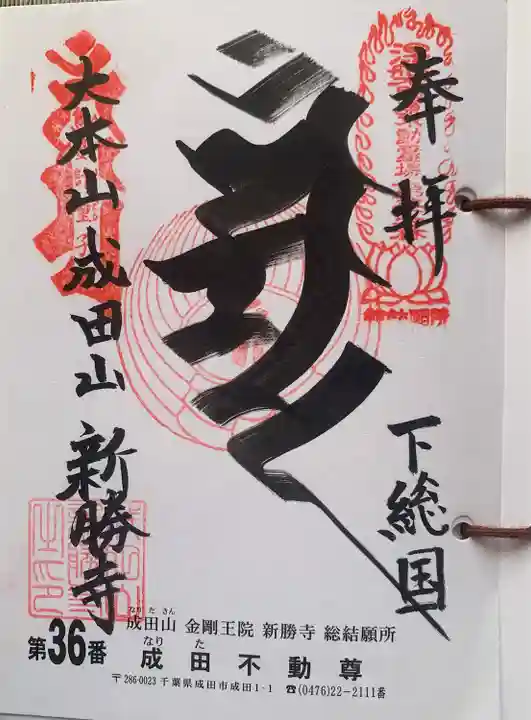 奉拝
下総国
大本山成田山 新勝寺
なりたさん
成田山 金剛王院 新勝寺 総結願所
第36番
なりた
成田不動尊
〒286-0023 千葉県成田市成田1-1 ☎(0476)22-2111番